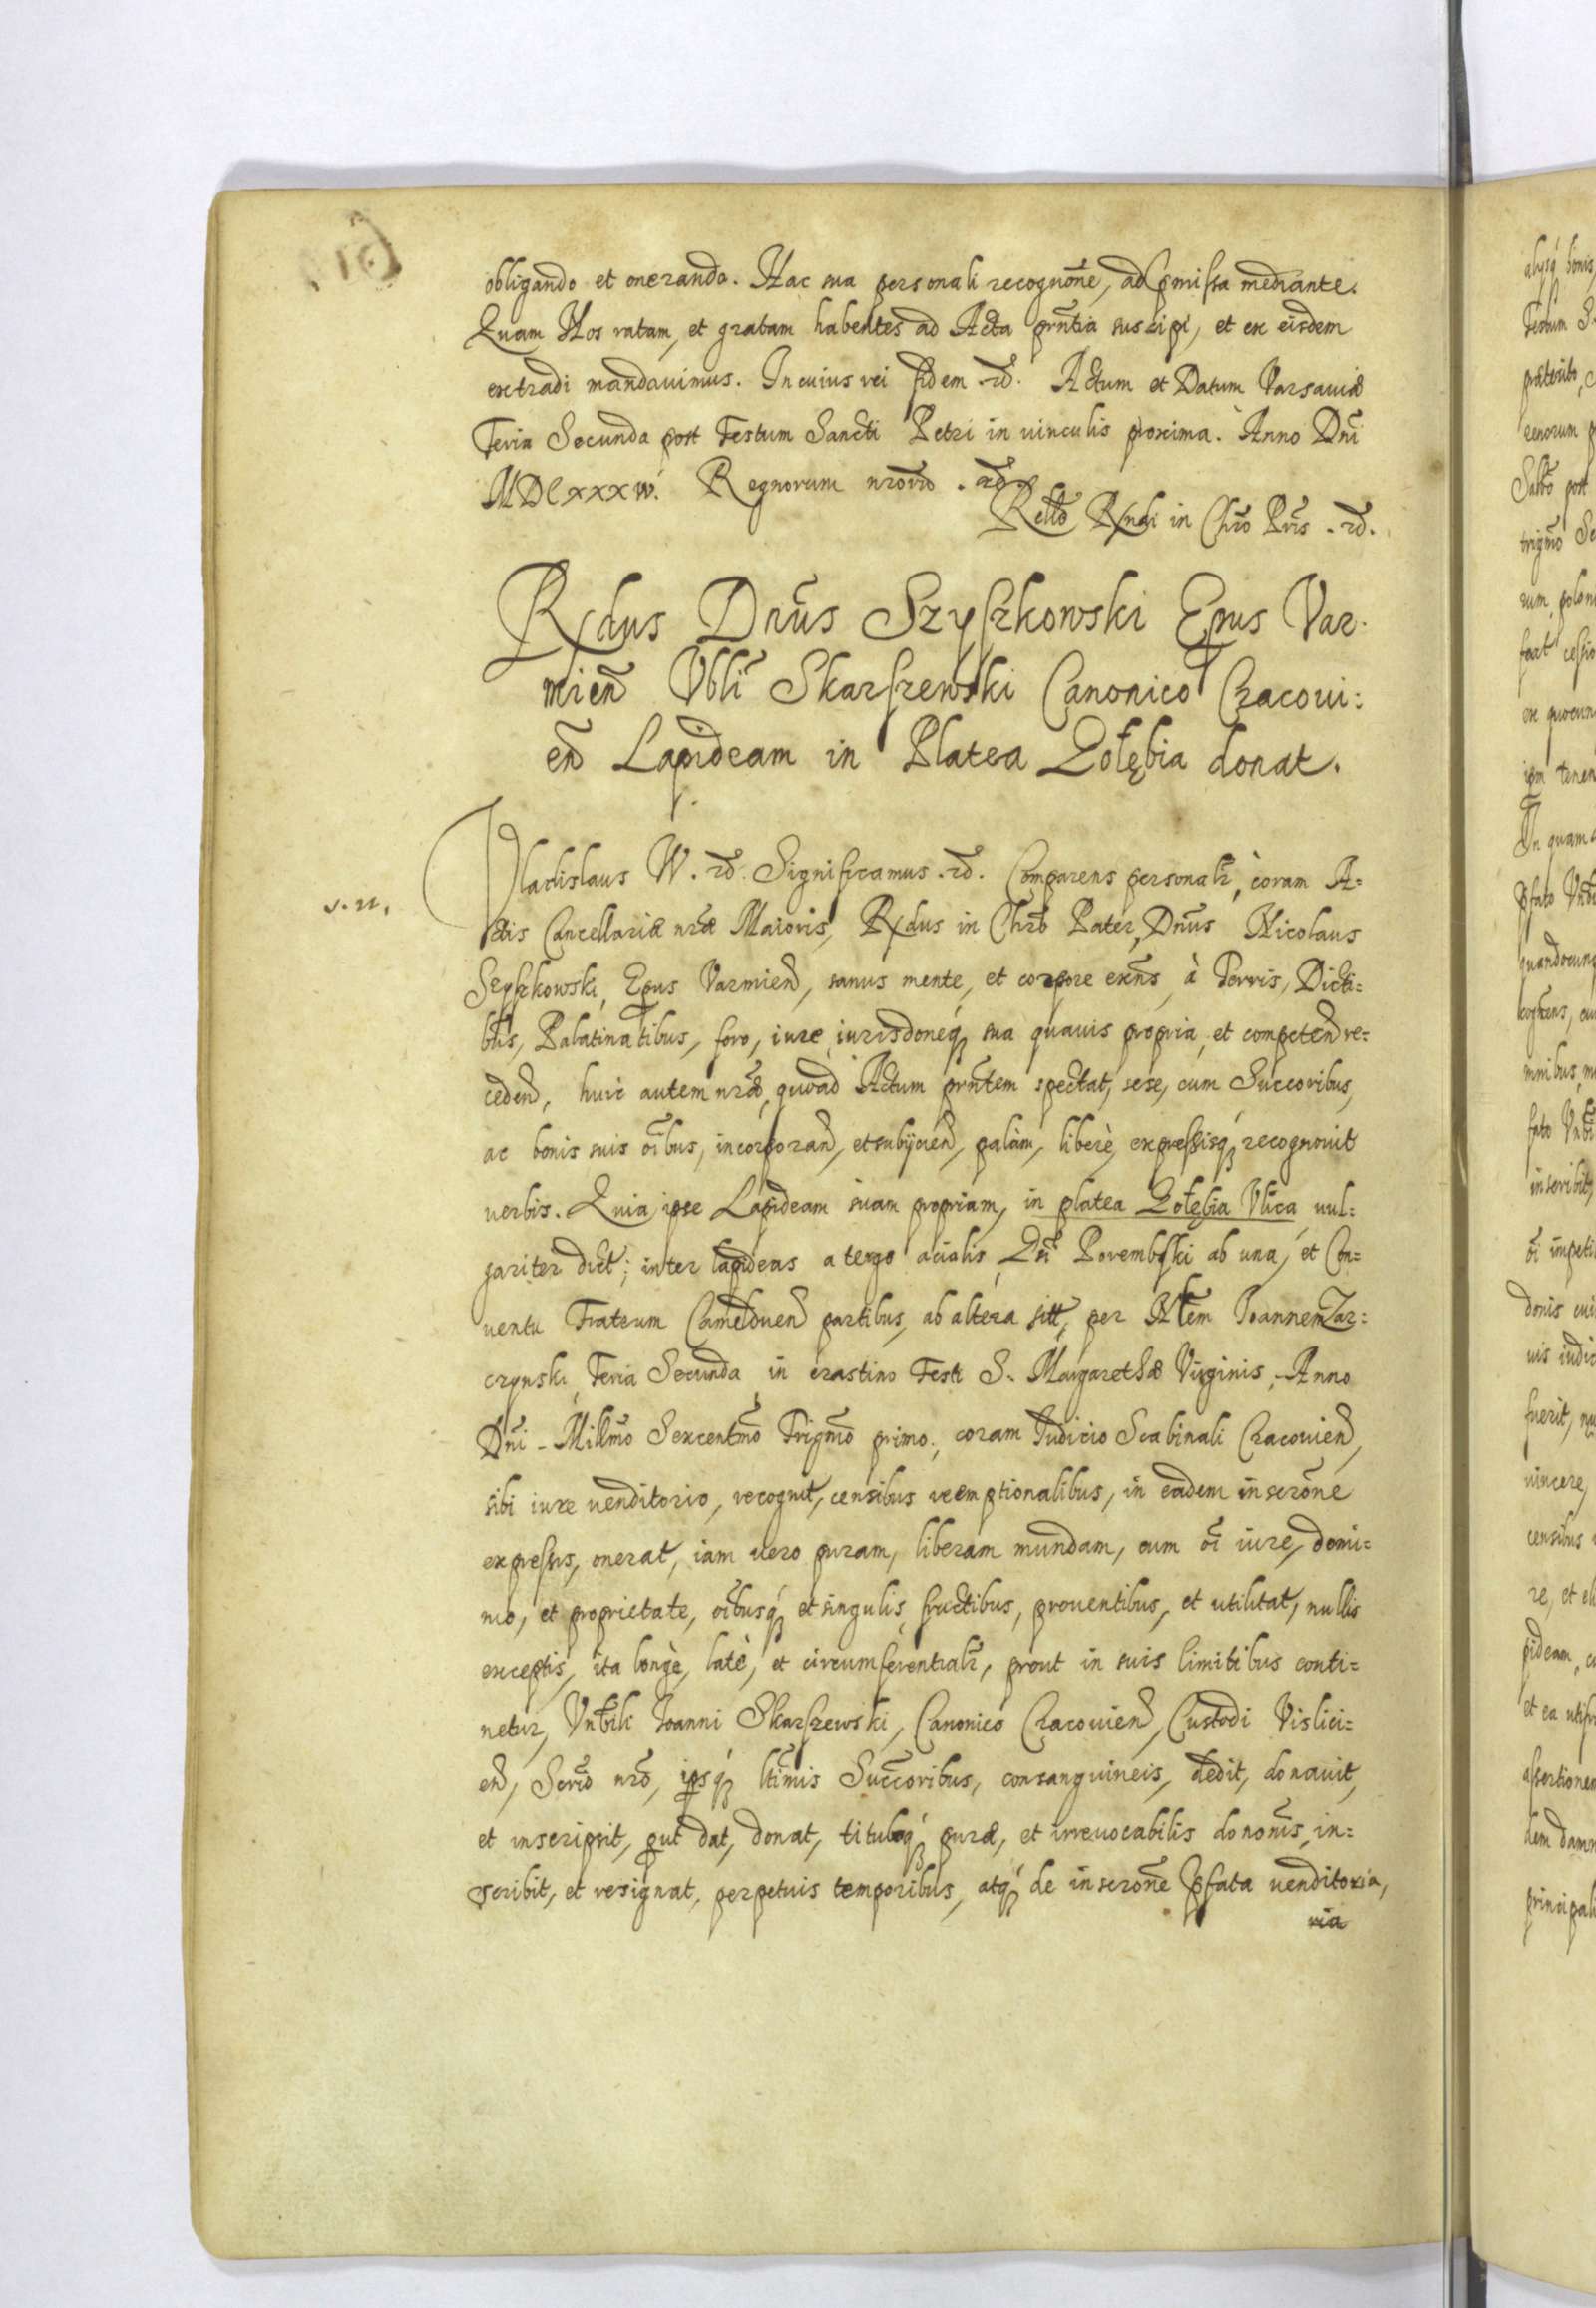 obligando et onerando. Hac sua personali recognone, ad pmissa mediante.
Quam Nos ratam, et gratam habentes ad Acta prntia suscipi, et ex eisdem
extradi mandavimus. In cuius rei fidem .rd. Actum et Datum Varsaviæ
Feria Secunda post Festum Sancti Petri in vinculis proxima. Anno Dni
Regnorum nrorū .rd.
Relto Rxndi in Chro Pris .rd.
Rxdus Dnus Szyszkowski Epus Var-
mien Vbli Skarszewski Canonico Cracovi:
en Lapideam in Platea Gołębia donat.
Vladislaus W. rd. Significamus .rd. Comparens personalr, coram A=
ctis Cancellariæ nræ Maioris, Rxdus in Chro Pater, Dnus Nicolaus
Szyszkowski, Epus Varmien, sanus mente, et corpore exns, à Terris, Dicti=
bus, Palatinatibus, foro, iure, iurisdoneq, sua quavis propria, et competen re=
ceden, huic autem nræ, quoad Actum prntem spectat, sese, cum Succoribus,
ac bonis suis oibus, incorporan, et subijcien, palàm, liberè, expressisq, recognovit
verbis. Quia ipse Lapideam suam propriam, in platea Gołębia Vlica vul=
gariter dict; inter lapideas a tergo acialis, Gsi Porembski ab una, et Con=
ventu Fratrum Camelduen partibus, ab altera sitt, per Ntem Joannem Zar=
czynski, Feria Secunda in crastino Festi S. Margarethæ Virginis, Anno
Dni Millmo Sexcentmo Trigmo primo, coram Iudicio Scabinali Cracovien,
sibi iure venditorio, recognit, censibus reemptionalibus, in eadem inscrone
expressis, onerat, iam vero puram, liberam mundam, cum oi iure, domi=
nio, et proprietate, oibusq, et singulis, fructibus, proventibus, et utilitat, nullis
exceptis, ita longè, latè, et circumferentialr, prout in suis limitibus conti=
netur, Vnbili Joanni Skarszewski, Canonico Cracovien, Custodi Vislici=
en, Scrio nro, ipsiq, ltimis Succoribus, consanguineis, dedit, donavit,
et inscripsit, put dat, donat, tituloq, puræ, et irrevocabilis dononis, in=
scribit, et resignat, perpetuis temporibus, atq, de inscrone pfata venditoria,
ria